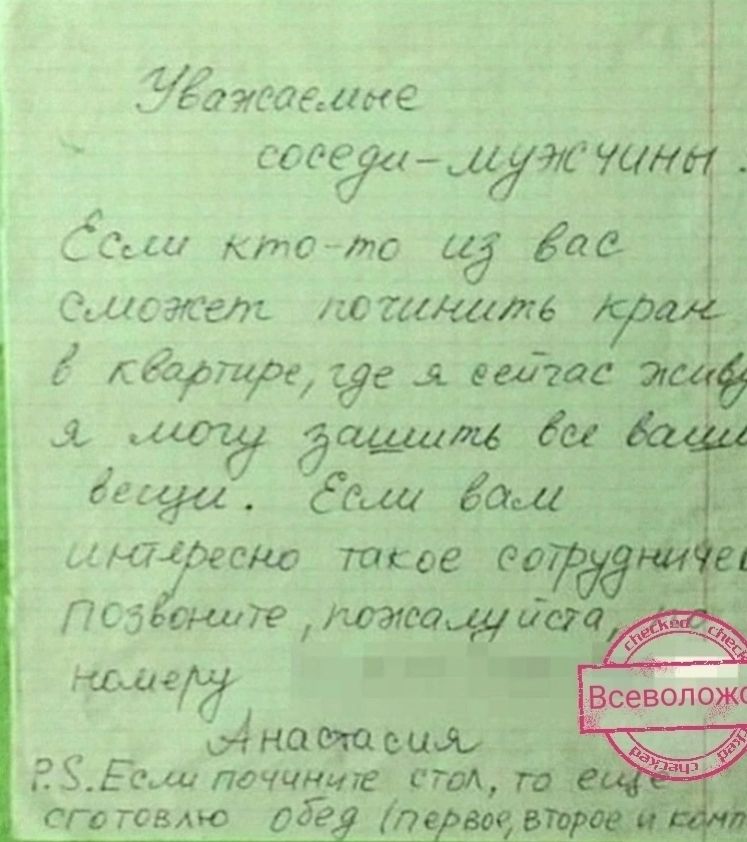 Уважаемые
соседи-мужчины.
Если кто-то из вас
сможет починить кран
в квартире, где я сейчас живу
я могу зашить все ваши
вещи. Если вам
интересно такое сотрудничес
позвоните, пожалуйста, по
номеру
Анастасия
P.S. Если почините стол, то еще
сготовлю обед (первое, второе и комп
checked checked
Всеволожс
checked checked